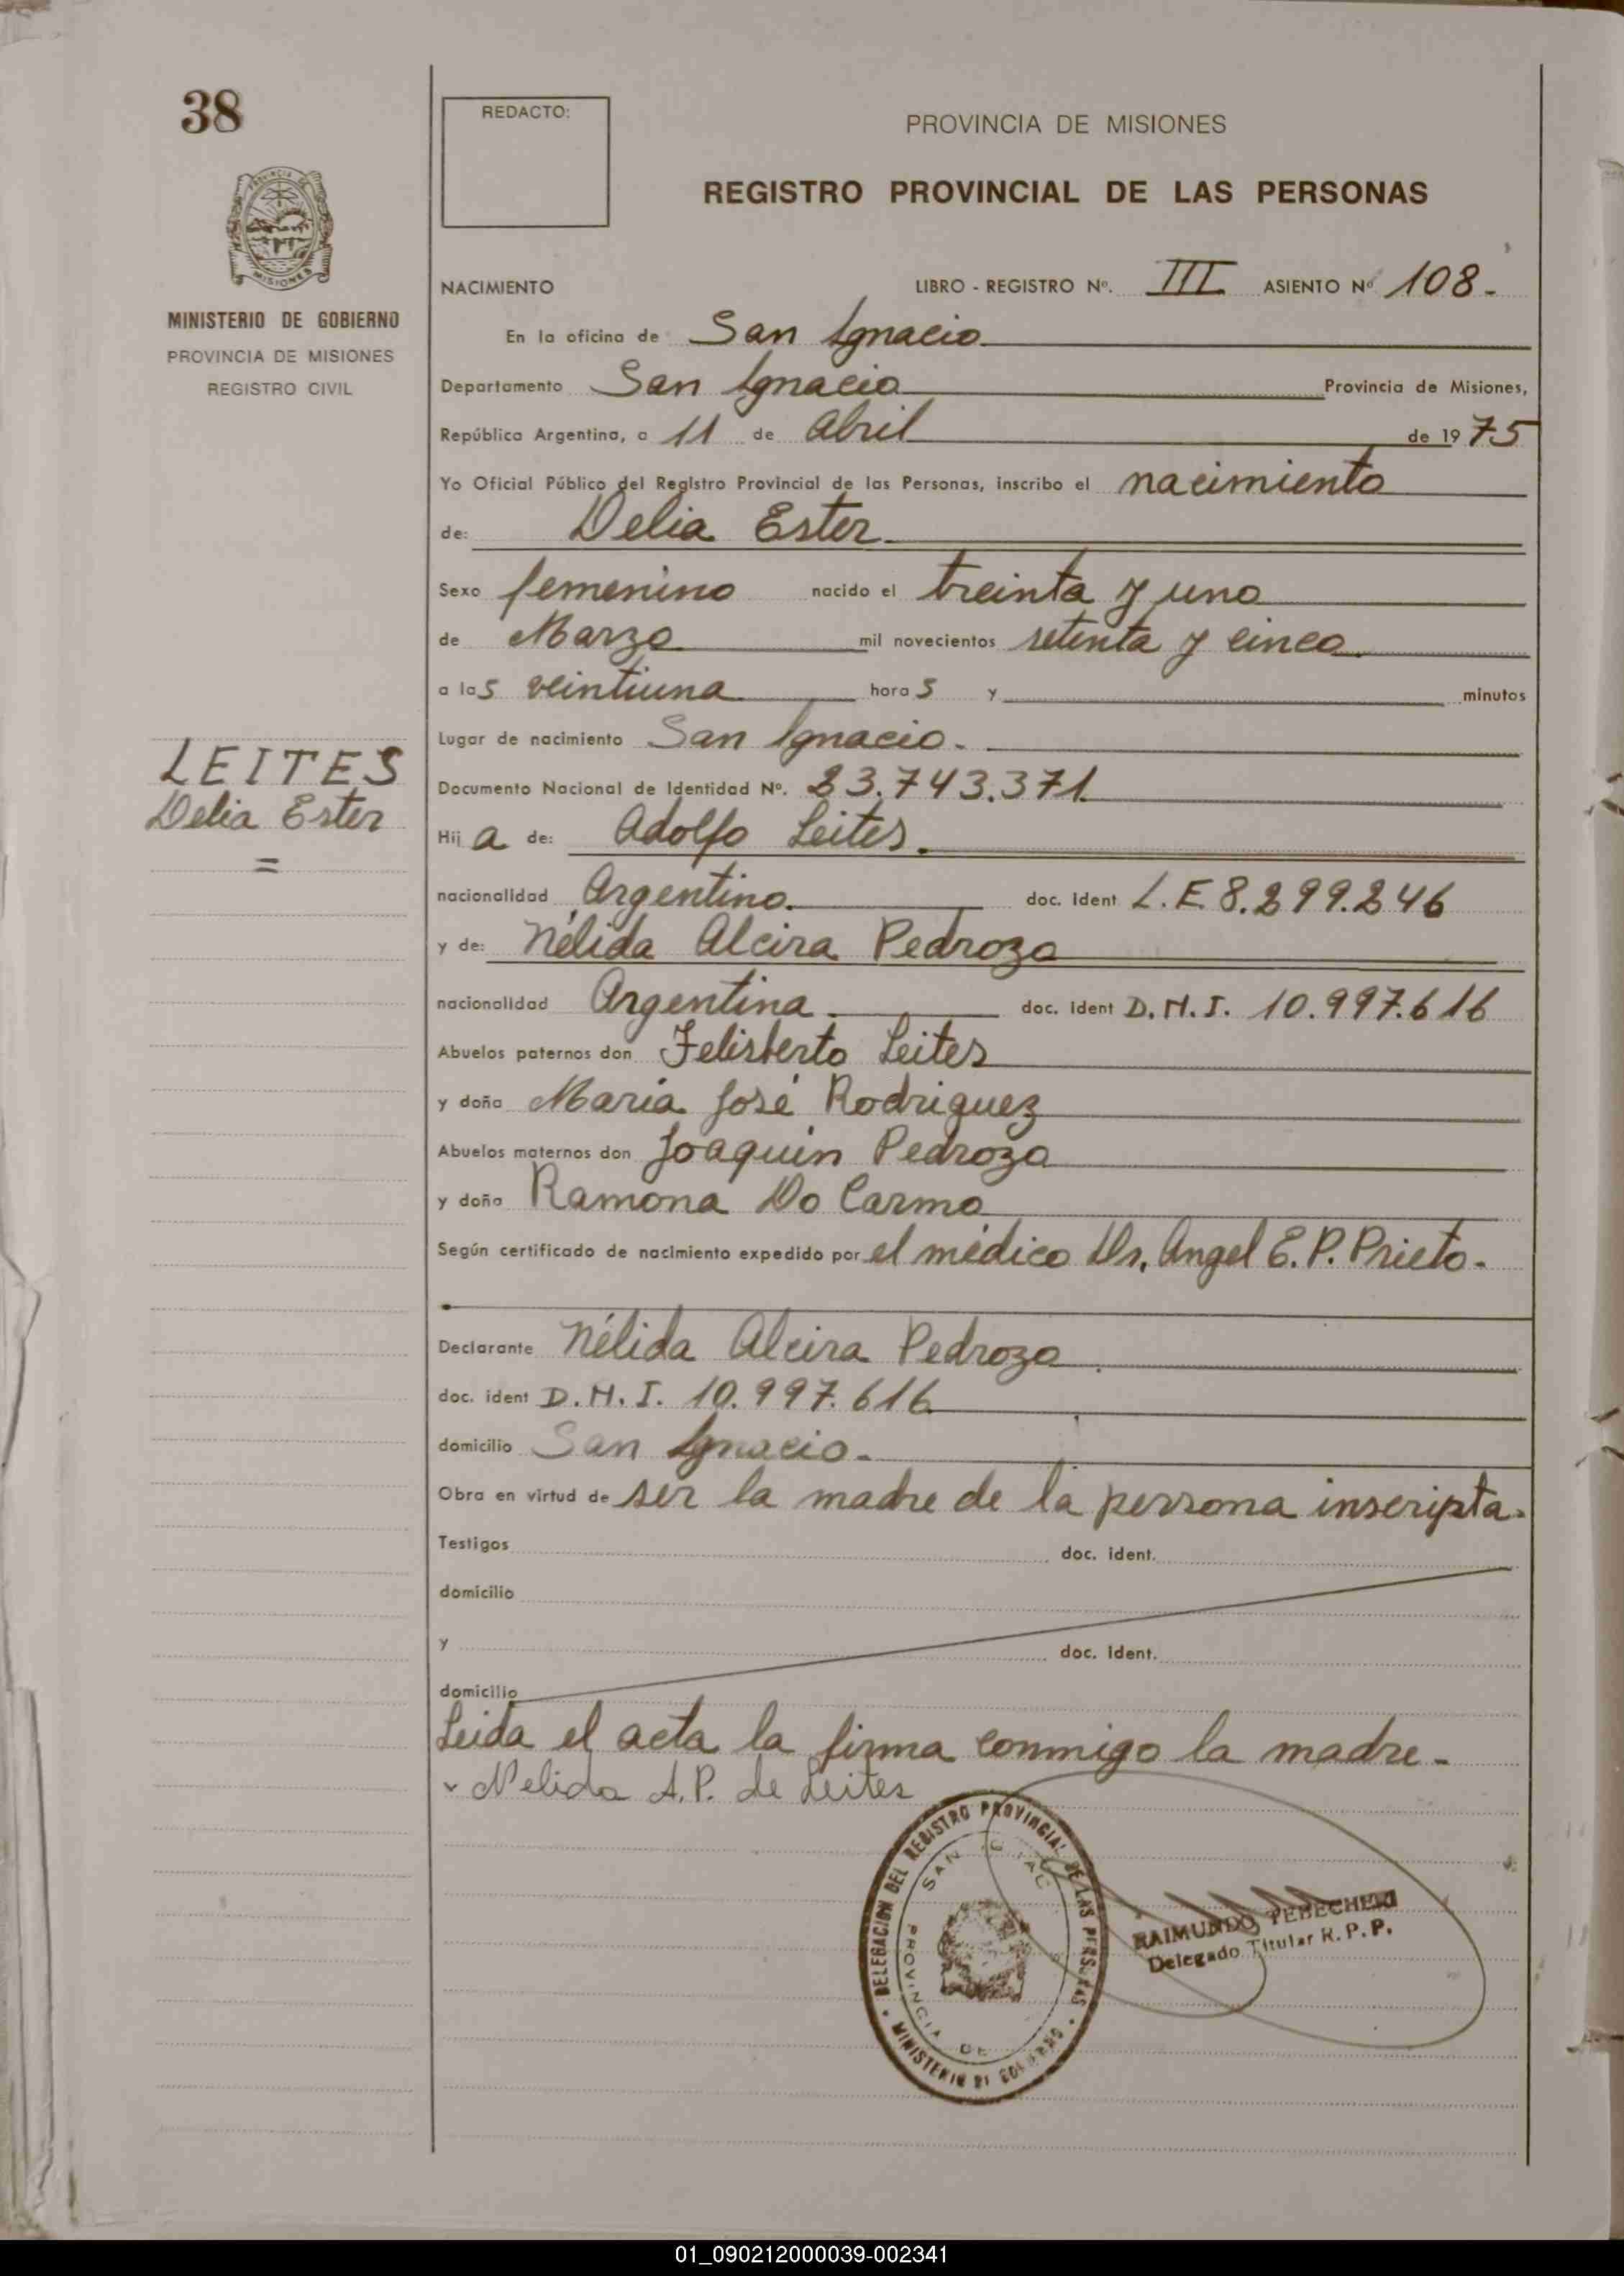 38
REDACTO:
PROVINCIA DE MISIONES
REGISTRO PROVINCIAL DE LAS PERSONAS
PROVINCIA DE
MISIONES
MINISTERIO DE GOBIERNO
PROVINCIA DE MISIONES
REGISTRO CIVIL
NACIMIENTO LIBRO - REGISTRO Nº. III ASIENTO Nº 108.-
En la oficina de San Ignacio.
Departamento San Ignacio Provincia de Misiones,
República Argentina, a 11 de Abril de 1975
Yo Oficial Público del Registro Provincial de las Personas, inscribo el nacimiento
de: Delia Ester.
Sexo femenino nacido el treinta y uno
de Marzo mil novecientos setenta y cinco.
a las veintiuna horas y minutos
Lugar de nacimiento San Ignacio.-
LEITES
Delia Ester
=
Documento Nacional de Identidad Nº. 23.743.371.
Hija de: Adolfo Leites.
nacionalidad Argentino. doc. ident L.E. 8.299.246
y de: Nélida Alcira Pedrozo
nacionalidad Argentina. doc. ident D.N.I. 10.997.616
Abuelos paternos don Felisberto Leites
y doña María José Rodriguez
Abuelos maternos don Joaquín Pedrozo
y doña Ramona Do Carmo
Según certificado de nacimiento expedido por el médico Dr. Angel E. P. Prieto.-
Declarante Nélida Alcira Pedrozo.
doc. ident D.N.I. 10.997.616
domicilio San Ignacio.-
Obra en virtud de ser la madre de la persona inscripta.
Testigos doc. ident.
domicilio
y doc. ident.
domicilio
Leida el acta la firma conmigo la madre.-
Nelida A.P. de Leites
DELEGACION DEL REGISTRO PROVINCIAL DE LAS PERSONAS
MINISTERIO DE GOBIERNO
SAN IGNACIO
PROVINCIA DE
RAIMUNDO
Delegado Titular R. P. P.
01_090212000039-002341